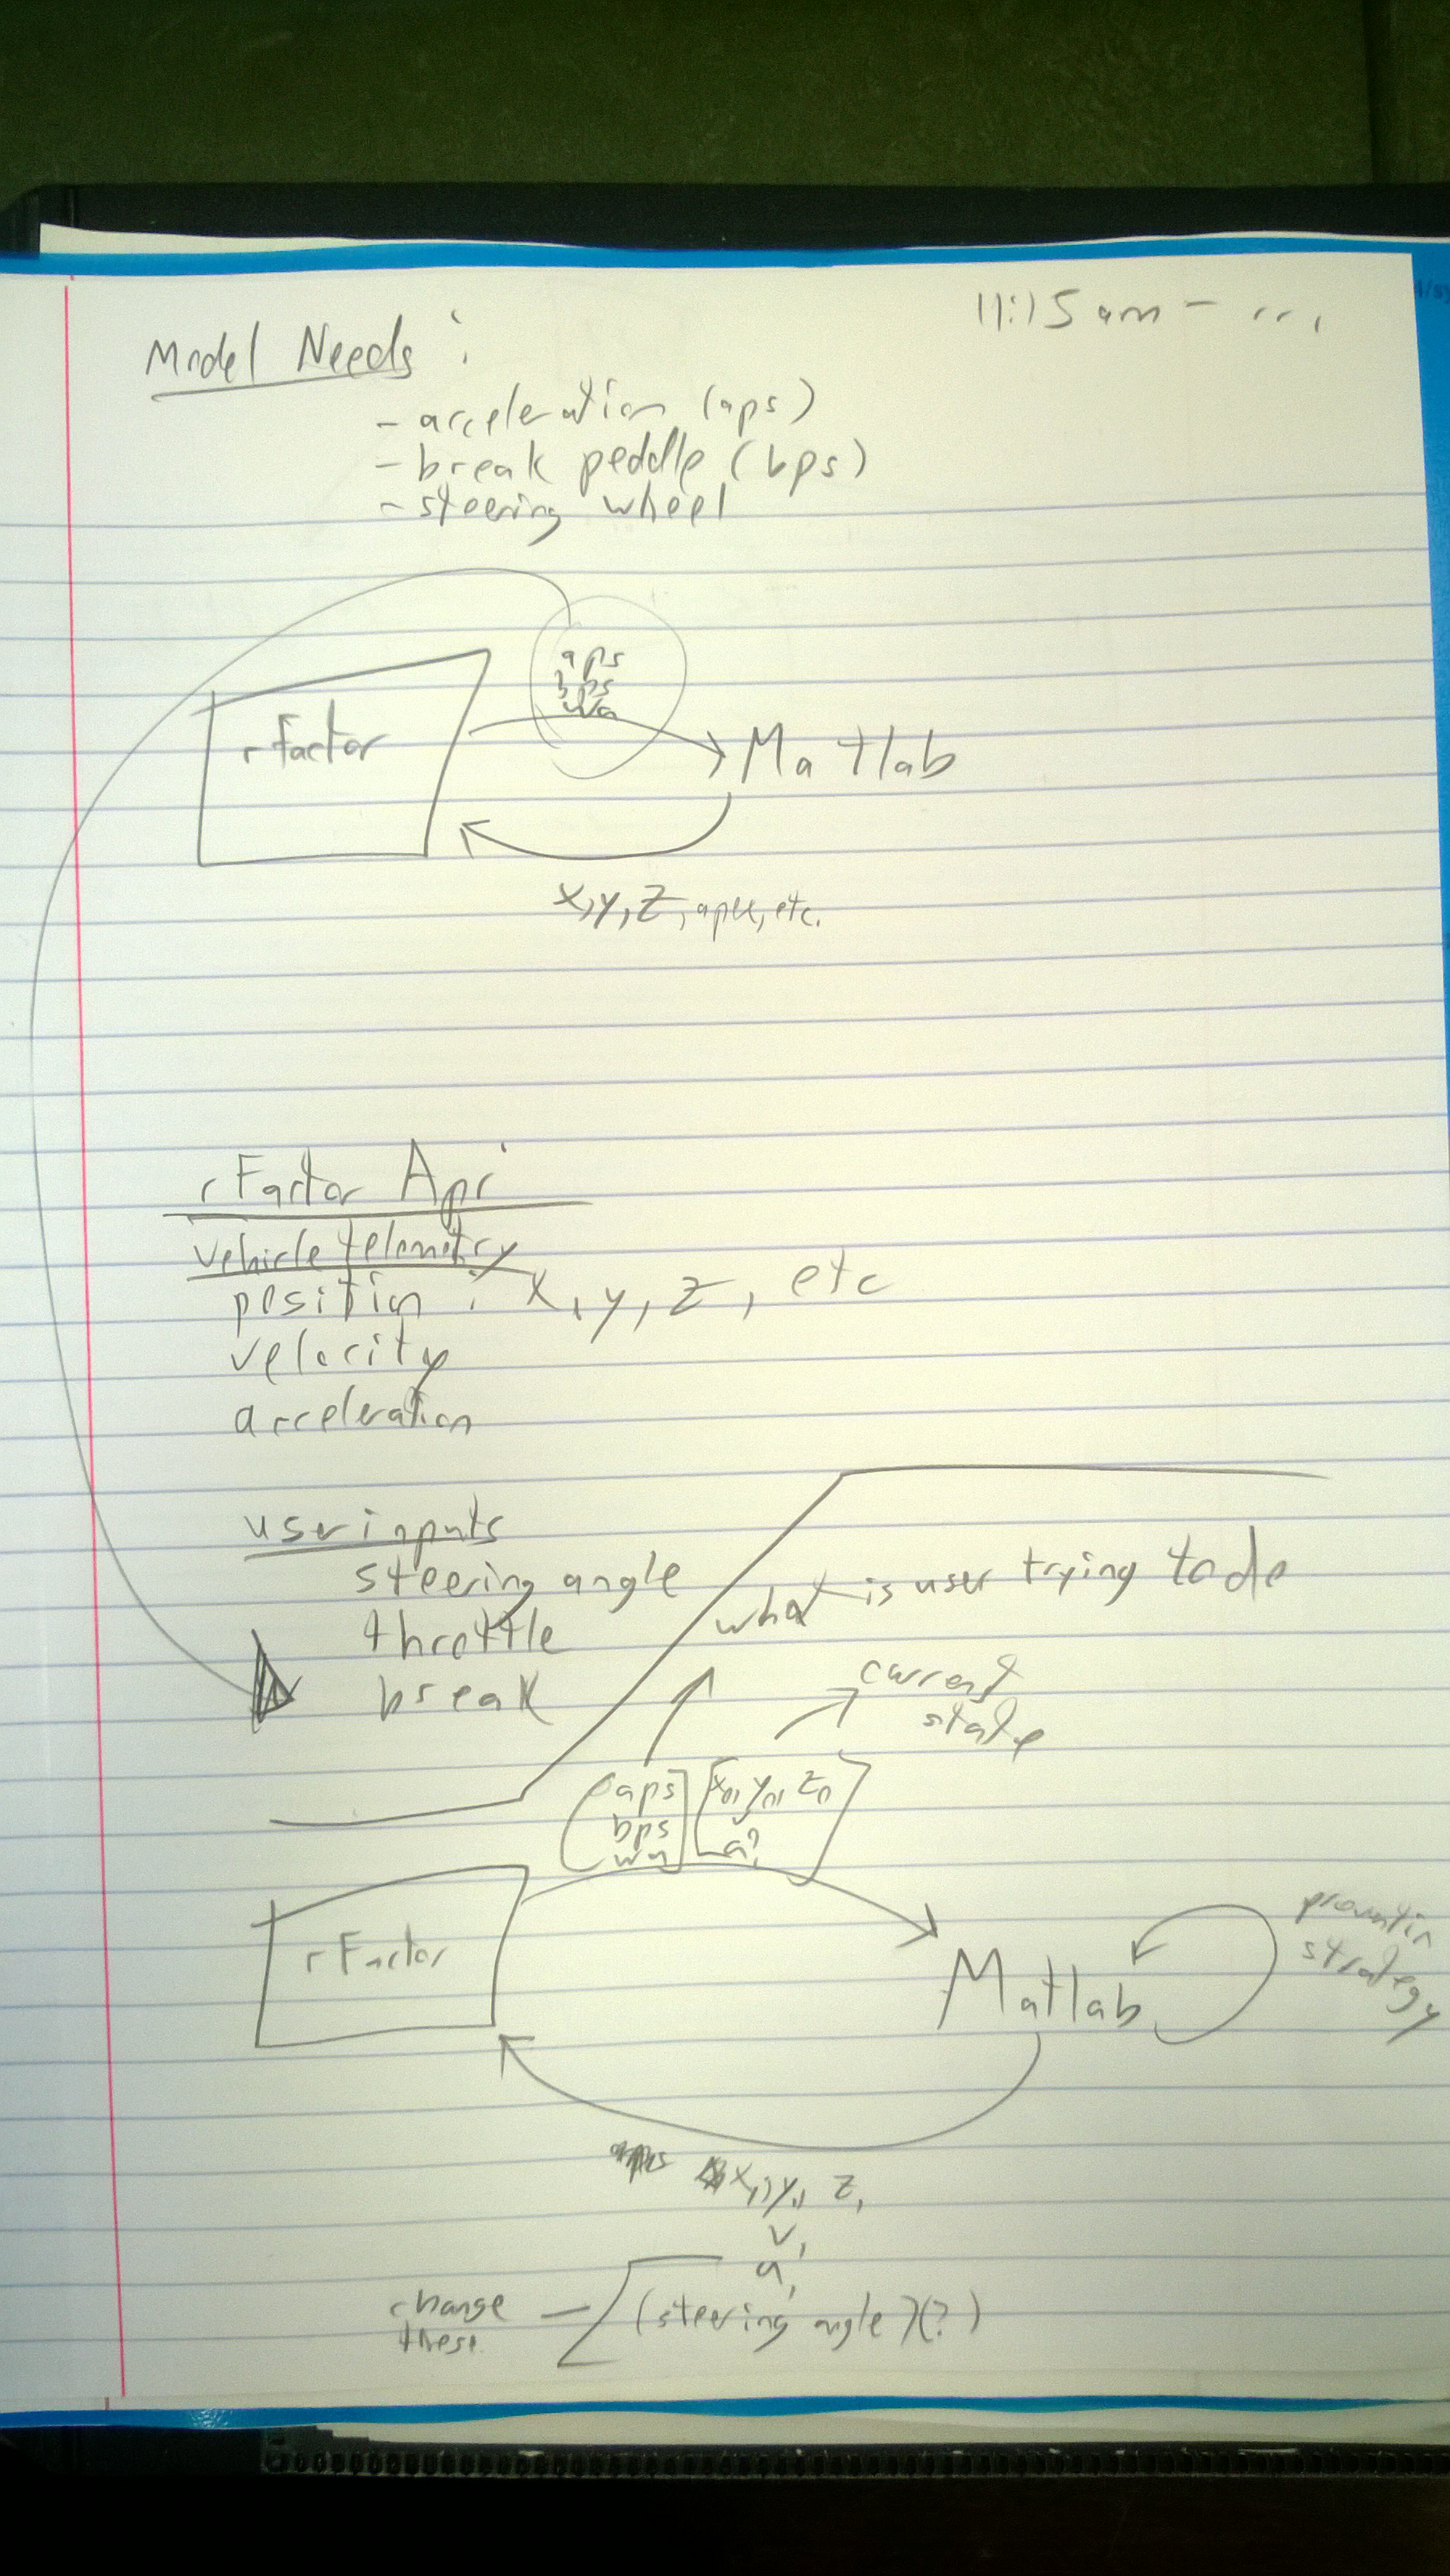 11:15 am - ...
Model Needs:
- acceleration (aps)
- break peddle (bps)
- steering wheel
aps
bps
wa
rFactor
Matlab
x, y, z, etc.
rFactor Api
vehicle telemetry
position : x, y, z, etc
velocity
acceleration
user inputs
steering angle
throttle
break
what is user trying to do
current
state
aps
bps
wa
x0, y0, z0
a?
rFactor
Matlab
strategy
x1, y1, z1
v1
a1
change
these
(steering angle)(?)